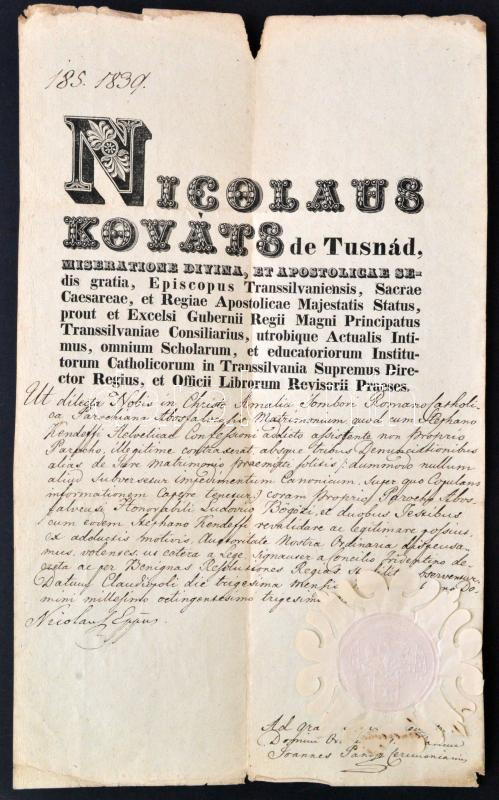 185. 1839.
NICOLAUS
KOVÀTS de Tusnád,
MISERATIONE DIVINA, ET APOSTOLICAE SE-
dis gratia, Episcopus Transsilvaniensis, Sacrae
Caesareae, et Regiae Apostolicae Majestatis Status,
prout et Excelsi Gubernii Regii Magni Principatus
Transsilvaniae Consiliarius, utrobique Actualis Inti-
mus, omnium Scholarum, et educatoriorum Institu-
torum Catholicorum in Transsilvania Supremus Dire-
ctor Regius, et Officii Librorum Revisorii Praeses.
Ut dilecta Nobis in Christo Amalia Tombori Romano Catholi-
ca Parochiana Matrimonium, quod cum Stephano
Kendeffi Helveticae Confessioni addicto assistente non proprio
Parocho, illegitime contraxerat, absque tribus Denunciationibus
alias de Jure Matrimonio praemitti solitis /: dummodo nullum
aliud subversetur impedimentum Canonicum, super quo Copulans
informationem capere tenetur :/ coram proprio Parocho
Honorabili Ludovico et duobus Testibus
cum eodem Stephano Kendeffi revalidare ac legitimare possit,
ex adductis motivis, Authoritate Nostra Ordinaria dispensa-
mus, volentes, ut cetera a Lege, Concilio Tridentino
ac per Benignas Resolutiones Regias observentur.
Datum Claudiopoli die trigesima Mensis Do-
mini millesimo octingentesimo
Nicolaus Eppus.
Ad
Domini
Joannes Ceremoniarius